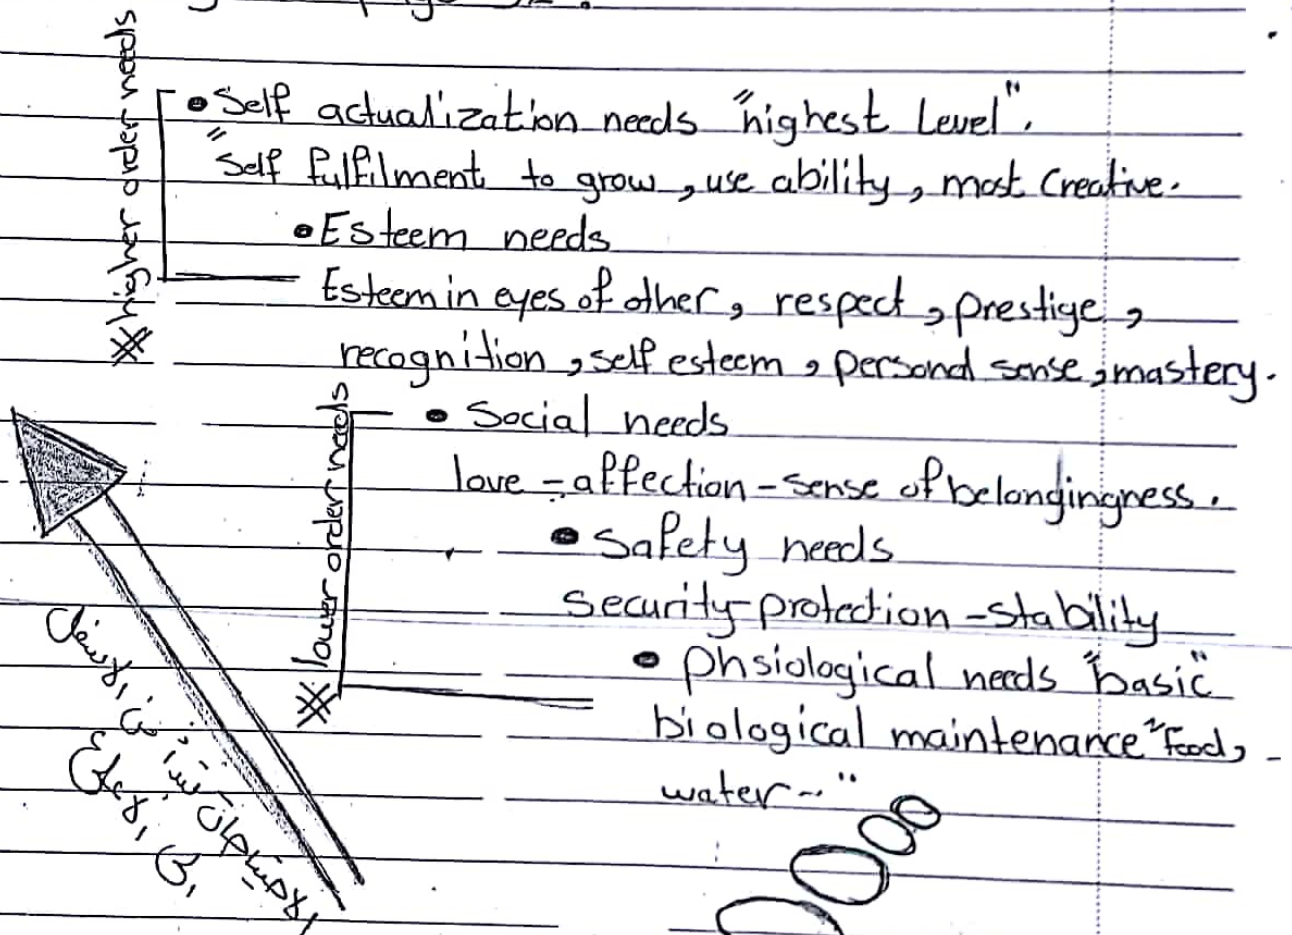 ※ higher order needs
• Self actualization needs "highest Level".
"Self fulfilment to grow, use ability, most Creative.
• Esteem needs
Esteem in eyes of other, respect, prestige,
recognition, self esteem, personal sense, mastery.
※ lower order needs
• Social needs
love - affection - sense of belongingness.
• Safety needs
security - protection - stability
• phsiological needs "basic"
biological maintenance "food,
water --"
الاحتياجات تبدأ من الاسفل
إلى الاعلى